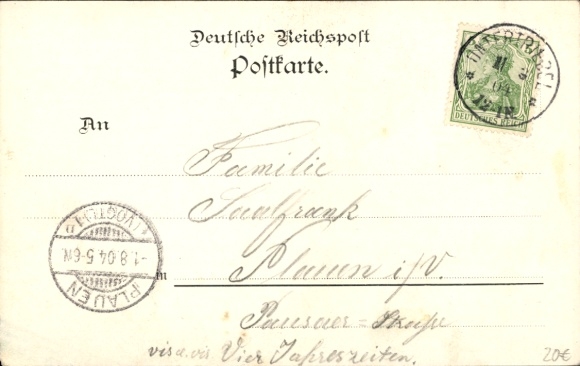 Deutsche Reichspost
Postkarte.
UNTERTRIEBEL
DEUTSCHES REICH
An
Familie
Saalfrank
in Plauen i/V.
Pausaer-Straße
vis a. vis Vier Jahreszeiten.
PLAUEN
-1.8.04.5-6N.
(VOGTL.)1
20€